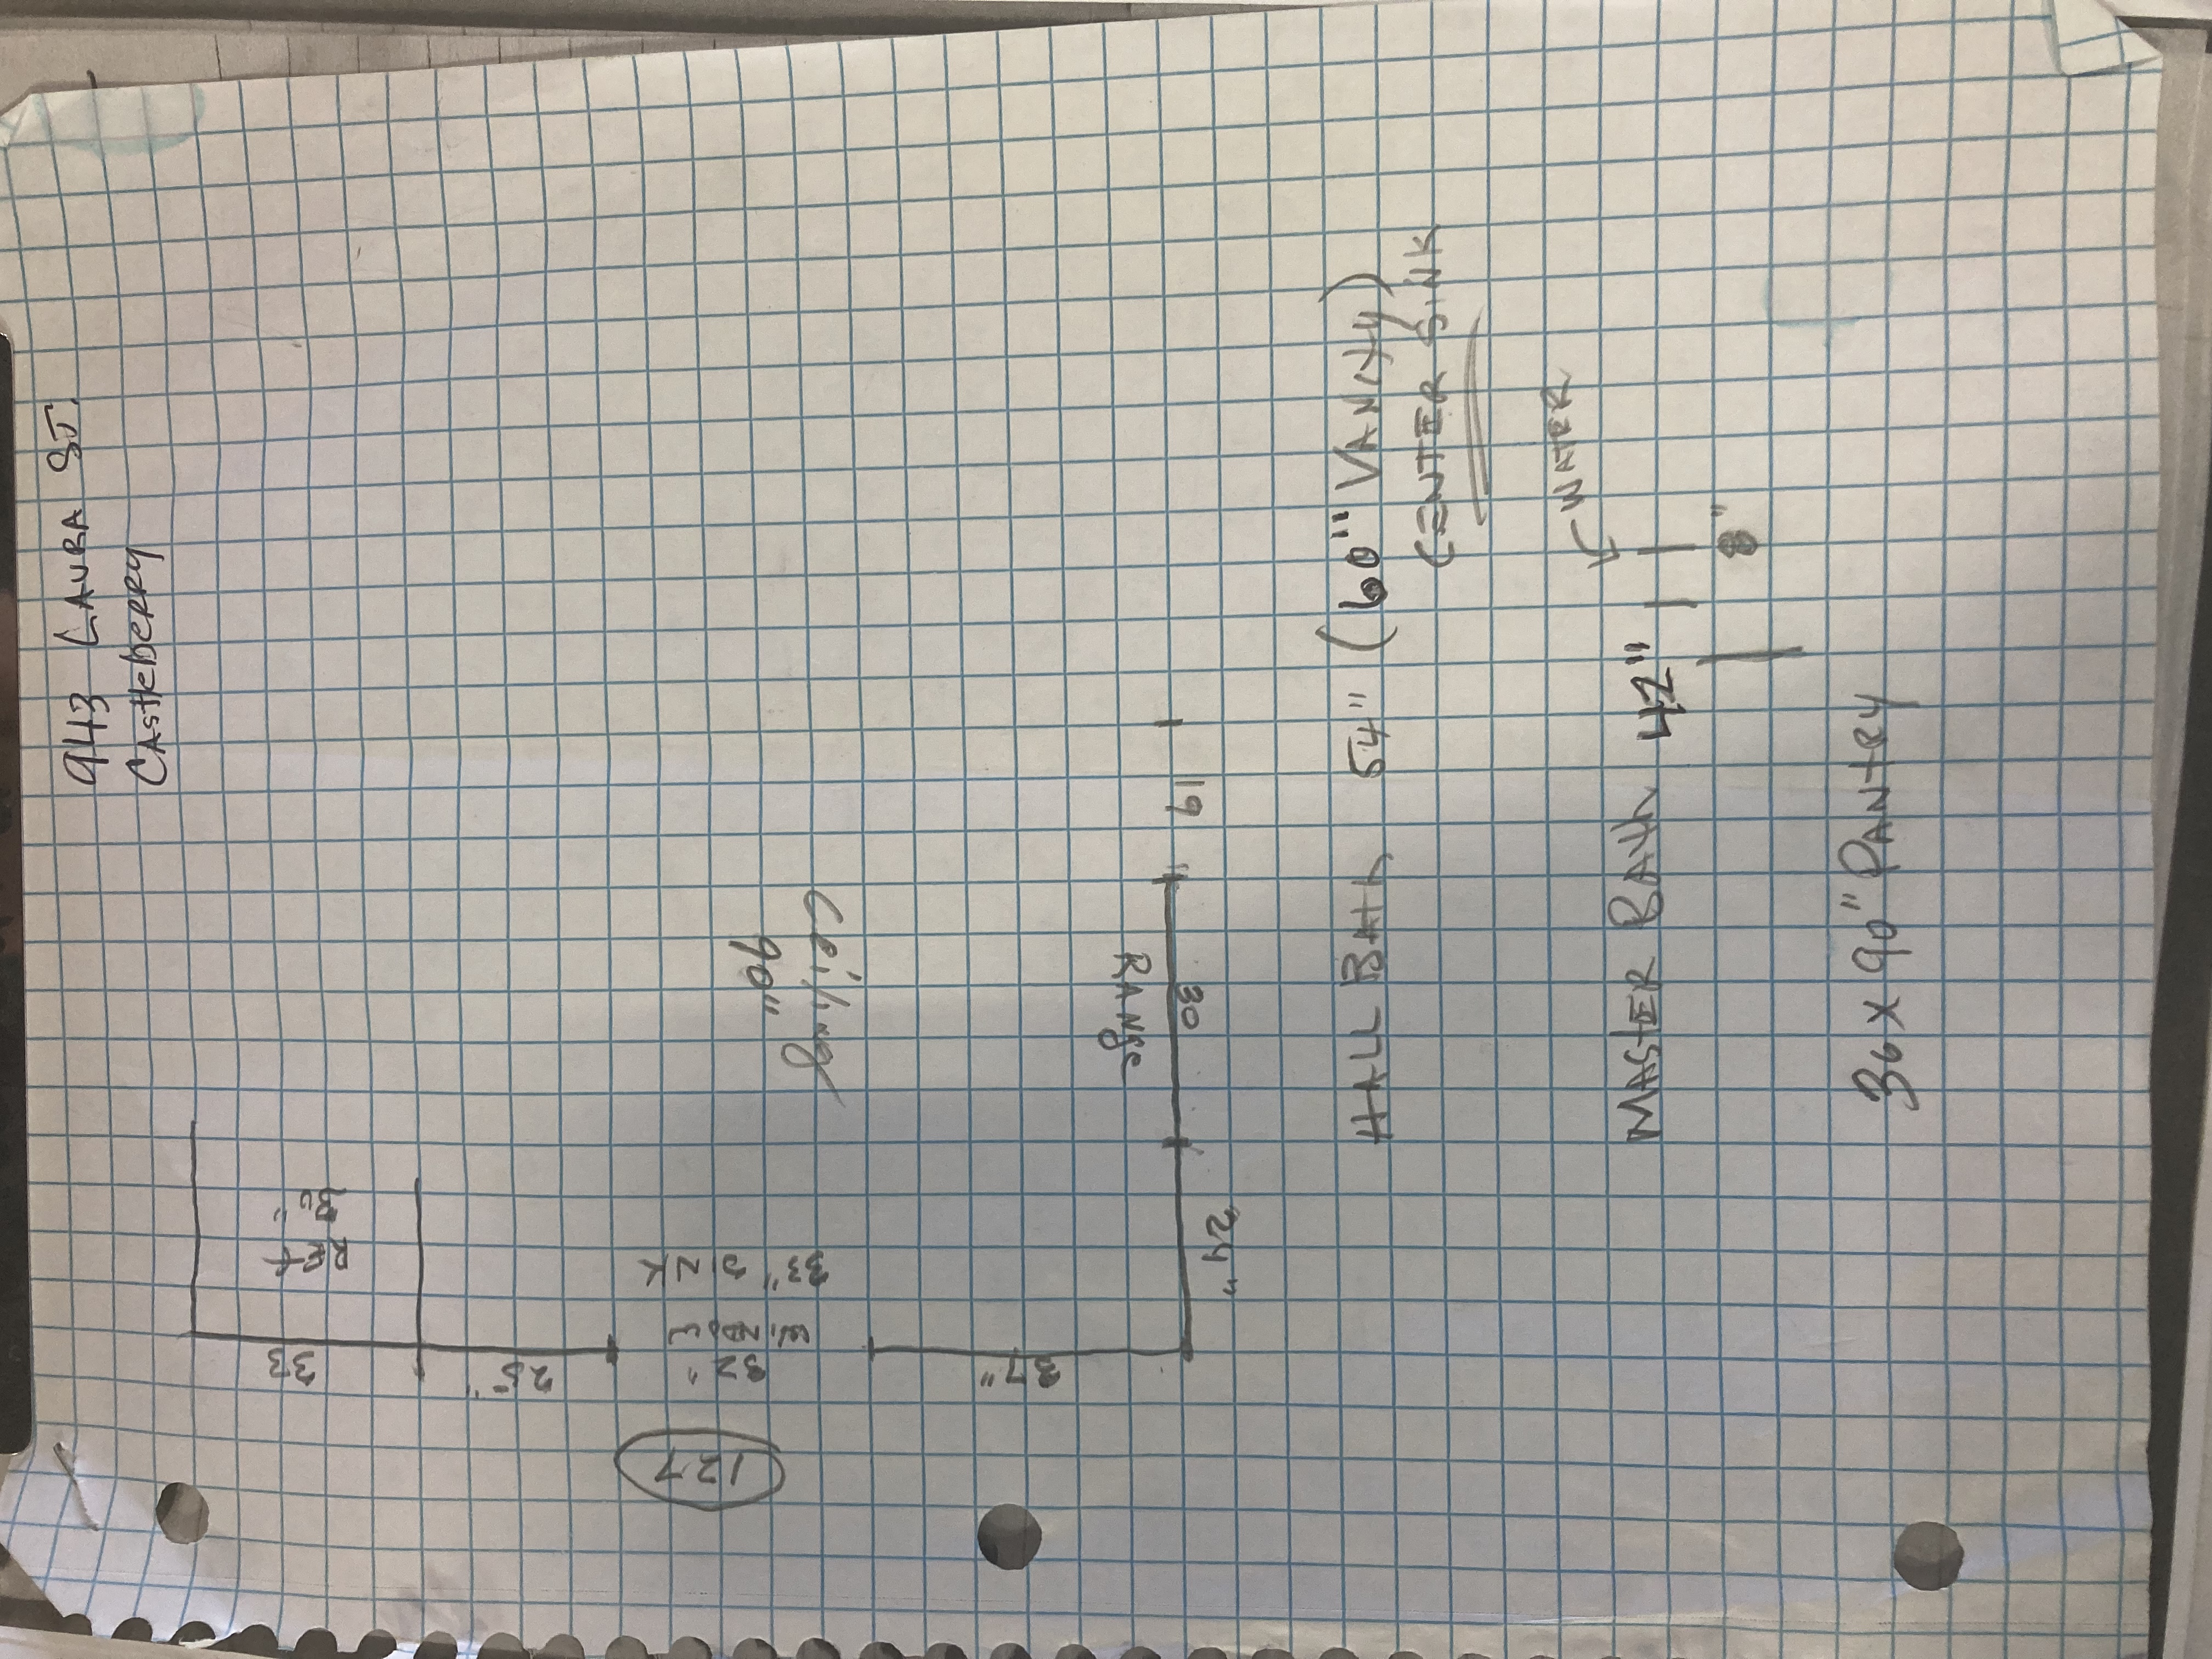 943 LAURA ST.
CASSELBERRY
33
REF
36"
25"
32"
WINDOW
33"
SINK
127
37"
Ceiling
90"
RANGE
24"
30
19
HALL BATH 54" (60" VANITY)
CENTER SINK
WATER
MASTER BATH 42"
8"
36 X 90" PANTRY